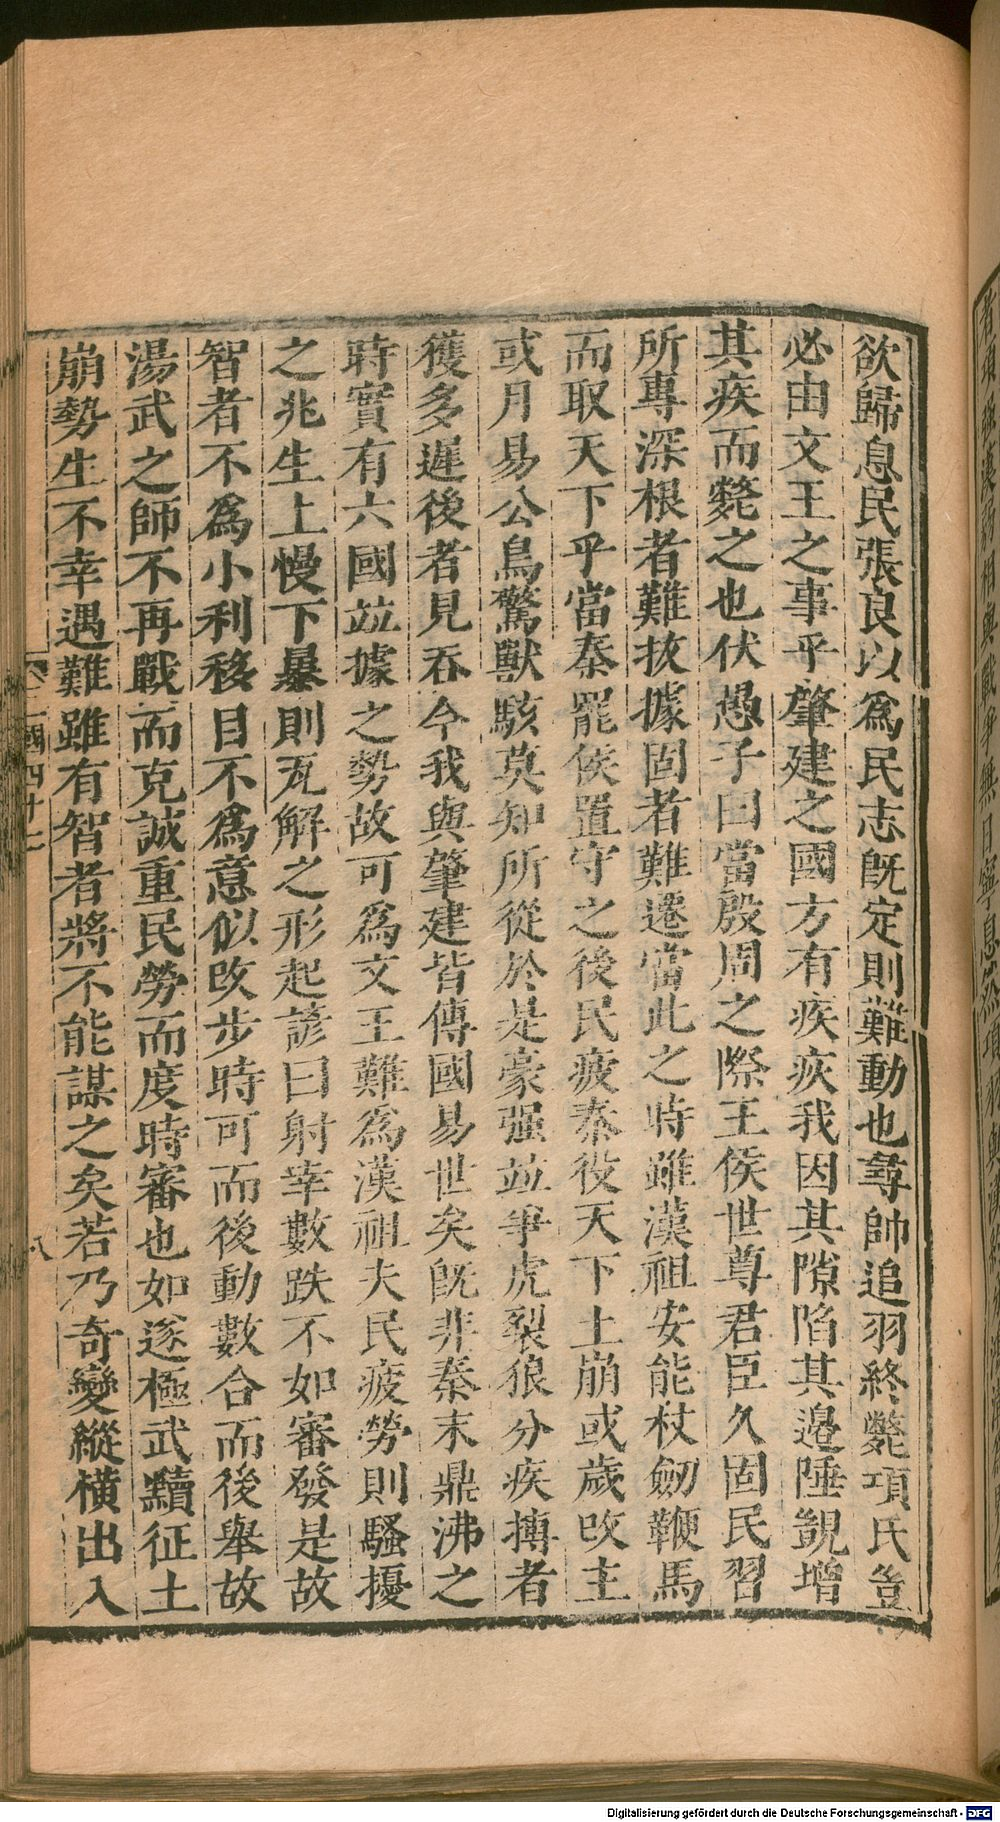 欲歸息民張良以爲民志旣定則難動也尋帥追羽終斃項氏豈
必由文王之事乎肇建之國方有疾疢我因其隙陷其邉陲覬增
其疾而斃之也伏愚子曰當殷周之際王侯世尊君臣久固民習
所專深根者難拔據固者難遷當此之時雖漢祖安能杖劒鞭馬
而取天下乎當秦罷侯置守之後民疲秦役天下土崩或歲改主
或月易公鳥驚獸駭莫知所從於是豪强竝爭虎裂狼分疾搏者
獲多遲後者見吞今我與肇建皆傳國易世矣旣非秦末鼎沸之
時實有六國竝據之勢故可爲文王難爲漢祖夫民疲勞則騷擾
之兆生上慢下暴則瓦解之形起諺曰射幸數跌不如審發是故
智者不爲小利移目不爲意似改步時可而後動數合而後舉故
湯武之師不再戰而克誠重民勞而度時審也如遂極武黷征土
崩勢生不幸遇難雖有智者將不能謀之矣若乃奇變縱横出入
國四十二
八
Digitalisierung gefördert durch die Deutsche Forschungsgemeinschaft - DFG